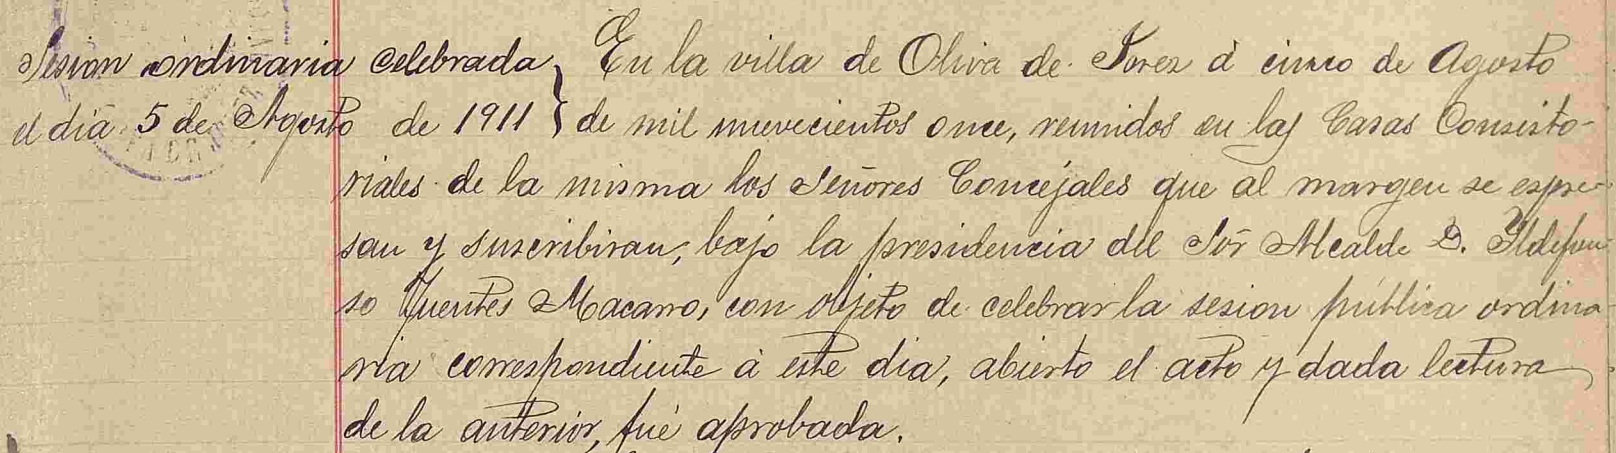 Sesion ordinaria celebrada } En la villa de Oliva de Jerez á cinco de Agosto
el dia 5 de Agosto de 1911 } de mil nuevecientos once, reunidos en las Casas Consisto-
riales de la misma los Señores Concejales que al margen se espre-
san y suscribiran, bajo la presidencia del Sór Alcalde D. Yldefon
so Fuentes Macarro, con objeto de celebrar la sesion pública ordina
ria correspondiente á este dia, abierto el acto y dada lectura
de la anterior, fué aprobada.